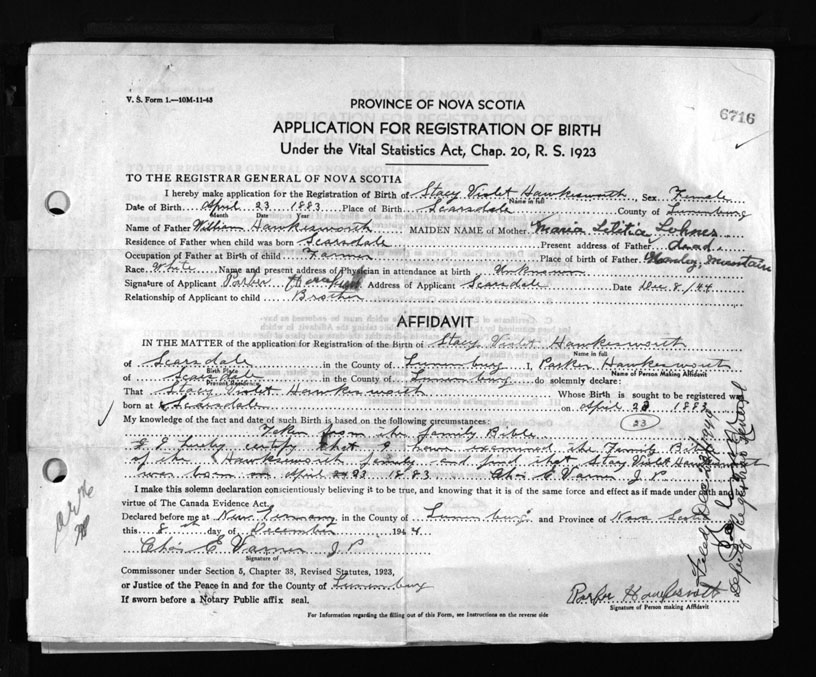 V. S. Form 1.—10M-11-43
PROVINCE OF NOVA SCOTIA
6716
APPLICATION FOR REGISTRATION OF BIRTH
Under the Vital Statistics Act, Chap. 20, R. S. 1923
TO THE REGISTRAR GENERAL OF NOVA SCOTIA
I hereby make application for the Registration of Birth of Stacy Violet Hawkesworth, Sex Female
Name in full
Date of Birth April 23 1883 Place of Birth Scarsdale County of Lunenburg
Month Date Year
Name of Father William Hawkesworth MAIDEN NAME of Mother Maria Letitia Lohnes
Residence of Father when child was born Scarsdale Present address of Father dead
Occupation of Father at Birth of child Farmer Place of Father of Birth Mountain
Race White Name and present address of Physician in attendance at birth Unknown
Signature of Applicant Parker Address of Applicant Scarsdale Date Dec 8/44
Relationship of Applicant to child Brother
AFFIDAVIT
IN THE MATTER of the application for Registration of the Birth of Stacy Violet Hawkesworth
Name in full
of Scarsdale in the County of Lunenburg I, Parker Hawkesworth
Birth Place
Name of Person Making Affidavit
of Scarsdale in the County of Lunenburg do solemnly declare:
Present Residence
That Stacy Violet Hawkesworth Whose Birth is sought to be registered was
born at Scarsdale on April 23 1883
23
My knowledge of the fact and date of such Birth is based on the following circumstances:
Taken from the family Bible
I hereby certify that I have examined the Family Bible
of the Hawkesworth family and find that Stacy Violet Hawkesworth
was born on April 23 1883 Chas E Varner J.P.
I make this solemn declaration conscientiously believing it to be true, and knowing that it is of the same force and effect as if made under oath and
virtue of The Canada Evidence Act,
Declared before me at New Germany in the County of Lunenburg and Province of Nova Scotia
this 8th day of December 1944
Chas E Varner J.P.
Signature of
Commissioner under Section 5, Chapter 38, Revised Statutes, 1923,
or Justice of the Peace in and for the County of Lunenburg
If sworn before a Notary Public affix seal.
Parker Hawkesworth
Signature of Person making Affidavit
For Information regarding the filling out of this Form, see Instructions on the reverse side
Filed Dec
Deputy Registrar General